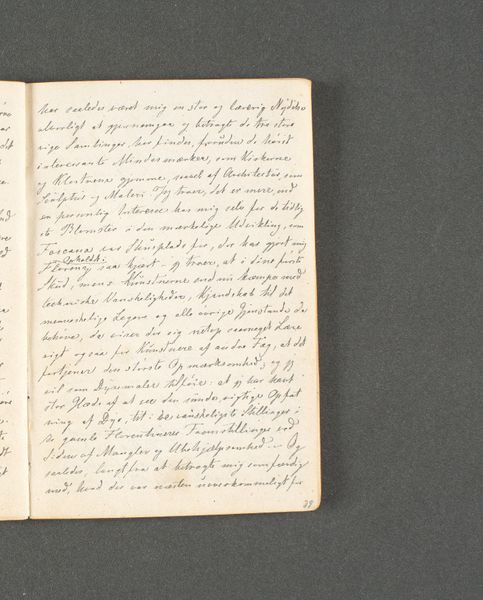 har saaledes været mig en stor og lærerig Nydelse
alvorligt at gjennemgaae og betragte de tre store
rige Samlinger her findes, foruden de høist
interessante Mindesmærker, som Kirkerne
og Klostrene gjemme, saavel af Architectur, som
Sculptur og Maleri. Jeg troer, det er mere, end
en personlig Interesse har mig selv for de tidlig
ste Blomster i den mærkelige Udvikling, som
Toscana var Skueplads for, der har gjort mig
Opholdet i
Florenz saa kjært – jeg troer, at i dens første
Skud, mens Kunstnerne endnu kæmpe med
techniske Vanskeligheder, Kjendskab til det
menneskelige Legeme og alle øvrige Gjenstande de
behøve, da viser der sig netop saameget Lære
rigt ogsaa for Kunstnere af andre Fag, at det
fortjener den største Opmærksomhed; og jeg
vil som Dyremaler tilføie: at jeg har havt
stor Glæde af at see den sunde, rigtige Opfat
ning af Dyr, tit i de vanskeligste Stillinger i
de gamle Florentineres Fremstillinger ved
Siden af Mangler og Ubehjælpsomhed. – Og
saaledes, langt fra at betragte mig som færdig
med, hvad der var næsten uoverkommeligt for
39